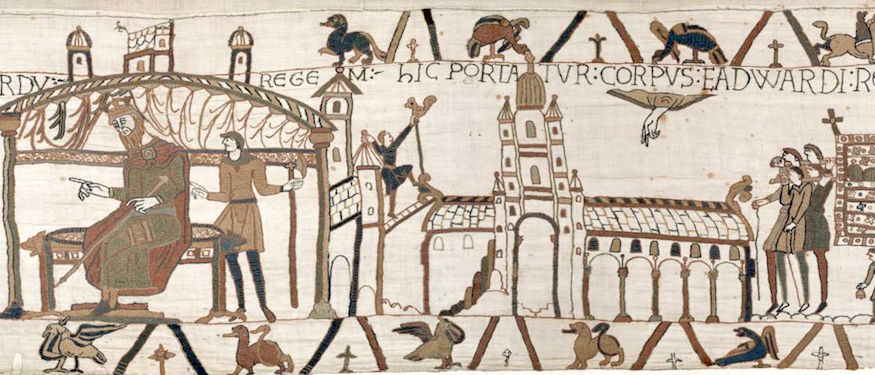 RDV: REGEM:- hIC PORTATVR: CORPVS: EADWARDI: RE